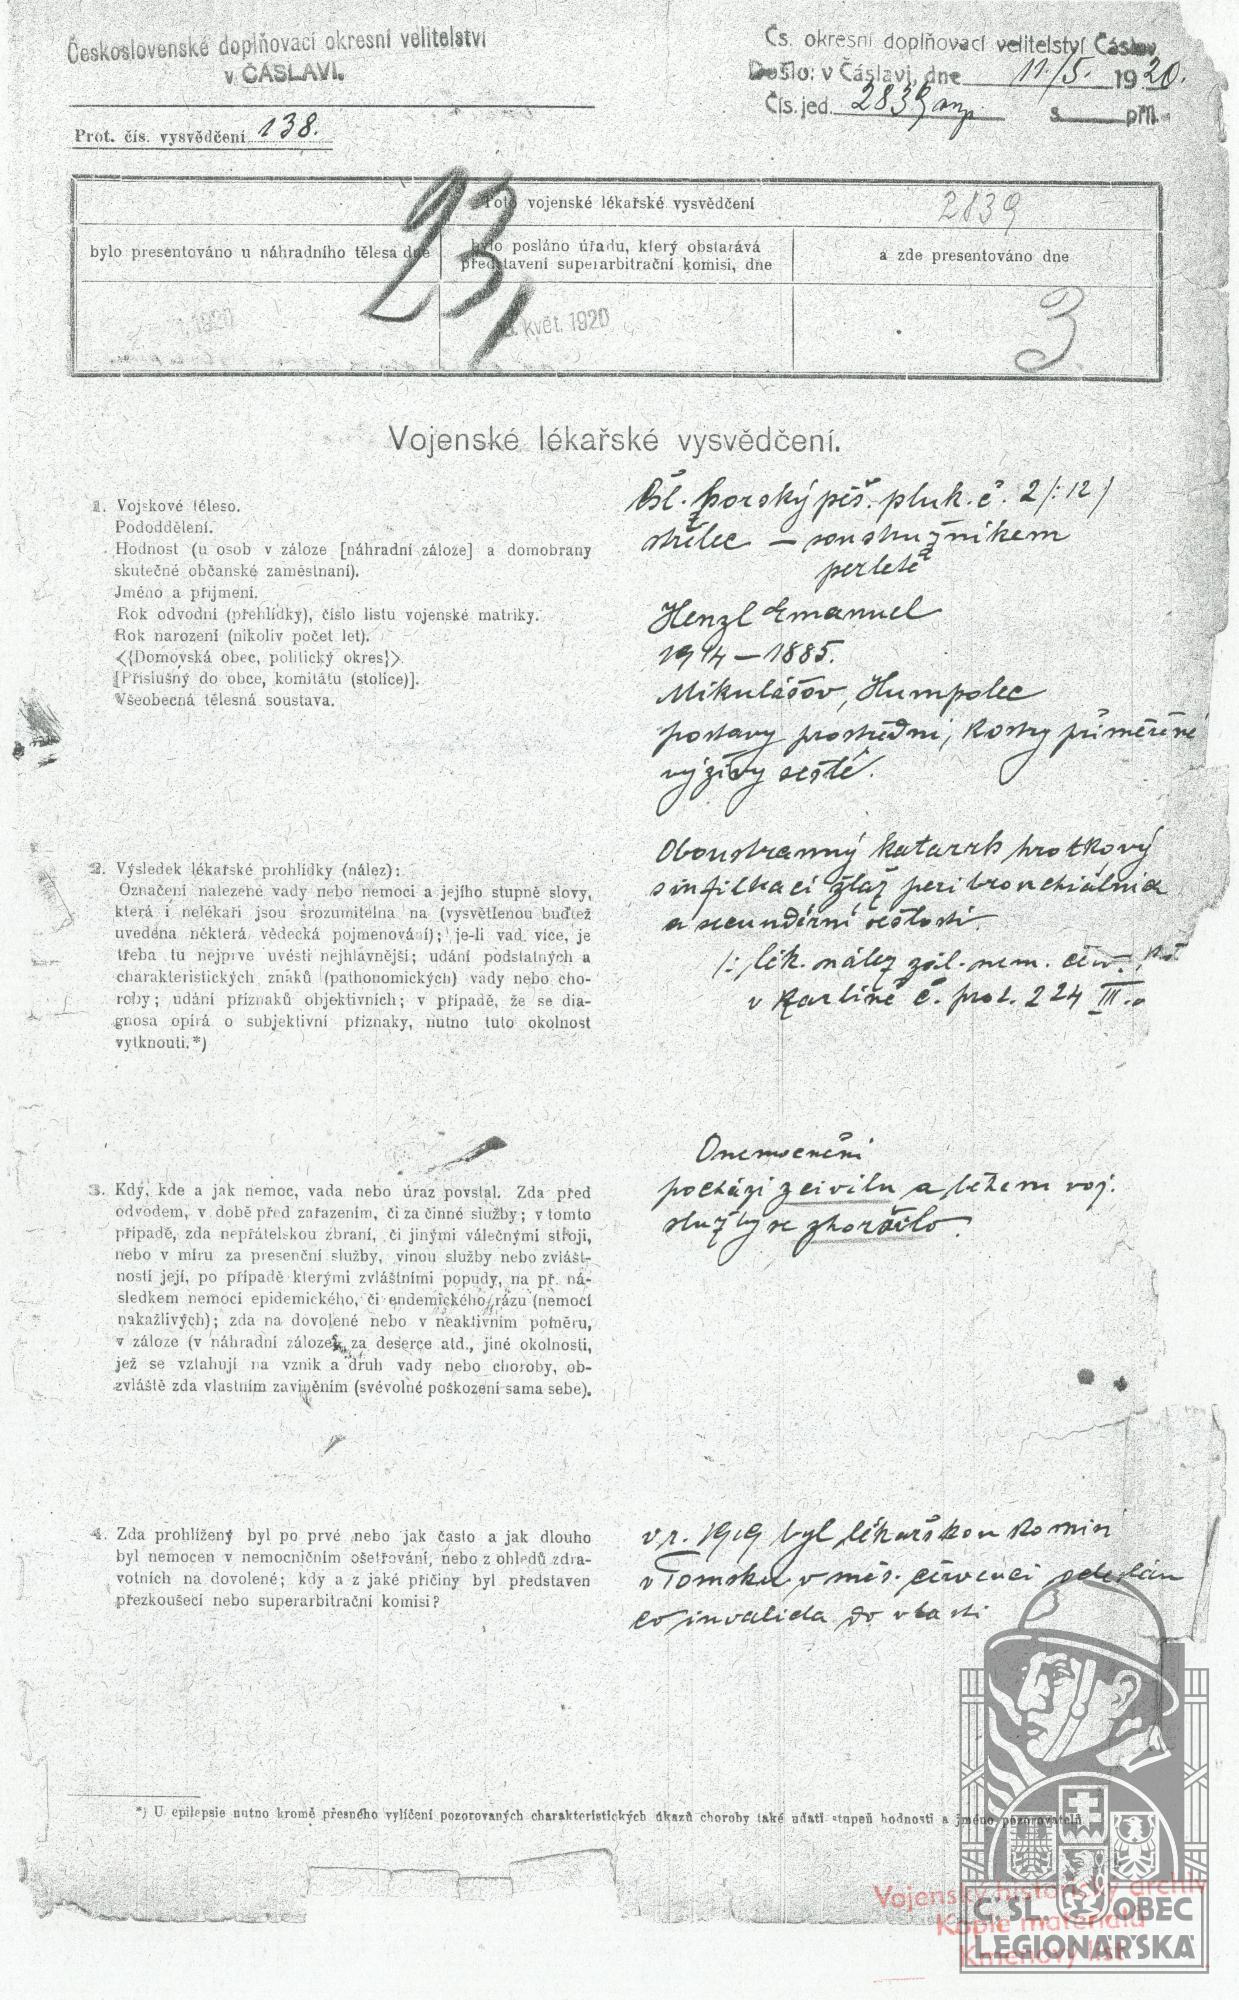 Československé doplňovací okresní velitelství
v ČÁSLAVI.
Čs. okresní doplňovací velitelství Čáslav
Došlo: v Čáslavi, dne 11./5. 1920.
Čís. jed. 2839 s příl.
Prot. čís. vysvědčení 138.
Toto vojenské lékařské vysvědčení
2839
bylo presentováno u náhradního tělesa dne
bylo posláno úřadu, který obstarává
představení superarbitrační komisi, dne
a zde presentováno dne
23,
1920
květ. 1920
3
Vojenské lékařské vysvědčení.
1. Vojskové těleso.
Pododdělení.
Hodnost (u osob v záloze [náhradní záloze] a domobrany
skutečné občanské zaměstnání).
Jméno a příjmení.
Rok odvodní (přehlídky), číslo listu vojenské matriky.
Rok narození (nikoliv počet let).
<{Domovská obec, politický okres}>
[Příslušný do obce, komitátu (stolice)].
Všeobecná tělesná soustava.
Čsl. horský pěš. pluk. č. 2 /:12/
střelec – soustružníkem
perletě
Henzl Emanuel
1914 – 1885.
Mikulášov, Humpolec
postavy prostřední, kostry přiměřené
výživy sešlé.
2. Výsledek lékařské prohlídky (nález):
Označení nalezené vady nebo nemoci a jejího stupně slovy,
která i nelékaři jsou srozumitelna na (vysvětlenou buďtež
uvedena některá vědecká pojmenování); je-li vad více, je
třeba tu nejprve uvésti nejhlavnější; udání podstatných a
charakteristických znaků (pathonomických) vady nebo cho-
roby; udání příznaků objektivních; v případě, že se dia-
gnosa opírá o subjektivní příznaky, nutno tuto okolnost
vytknouti.*)
Oboustranný katarrh hrotkový
s infiltrací žlaz peribronchiálních
a secundérní sešlostí.
/: lék. nález zál. nem. červ.
v Karlíně č. prot. 224 III.
3. Kdy, kde a jak nemoc, vada nebo úraz povstal. Zda před
odvodem, v době před zařazením, či za činné služby; v tomto
případě, zda nepřátelskou zbraní, či jinými válečnými stroji,
nebo v míru za presenční služby, vinou služby nebo zvlášt-
ností její, po případě kterými zvláštními popudy, na př. ná-
sledkem nemoci epidemického, či endemického rázu (nemocí
nakažlivých); zda na dovolené nebo v neaktivním poměru,
v záloze (v náhradní záloze), za deserce atd., jiné okolnosti,
jež se vztahují na vznik a druh vady nebo choroby, ob-
zvláště zda vlastním zaviněním (svévolné poškození sama sebe).
Onemocnění
pochází z civilu a během voj.
služby se zhoršilo.
4. Zda prohlížený byl po prvé nebo jak často a jak dlouho
byl nemocen v nemocničním ošetřování, nebo z ohledů zdra-
votních na dovolené; kdy a z jaké příčiny byl představen
přezkoušecí nebo superarbitrační komisi?
v r. 1919 byl lékařskou komisí
v Tomsku v měs. červenci odeslán
co invalida do vlasti
*) U epilepsie nutno kromě přesného vylíčení pozorovaných charakteristických úkazů choroby také udati stupeň hodnosti a jméno pozorovatelů.
Vojenský historický archiv
Kopie materiálu
Kmenový list
Č.SL. OBEC
LEGIONÁŘSKÁ